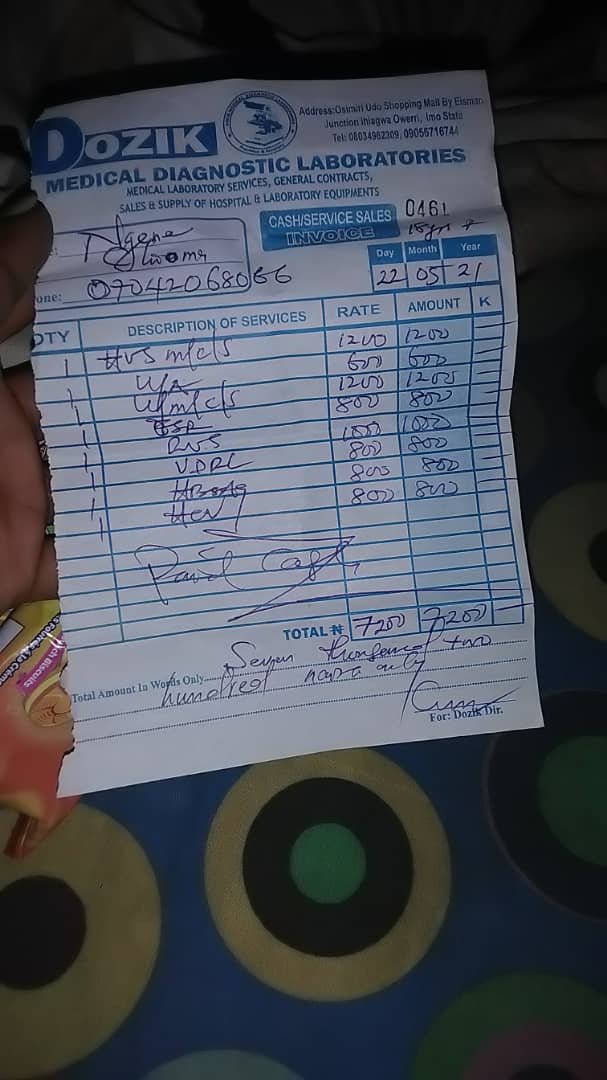 DOZIK
Address:Osimiri Udo Shopping Mall By Eisman
Junction Ihiagwa Owerri, Imo State
Tel: 08034962309, 09055716744
MEDICAL DIAGNOSTIC LABORATORIES
MEDICAL LABORATORY SERVICES, GENERAL CONTRACTS,
SALES & SUPPLY OF HOSPITAL & LABORATORY EQUIPMENTS
CASH/SERVICE SALES 0461
INVOICE
Day Month Year
22 05 21
one: 09042068066
QTY DESCRIPTION OF SERVICES RATE AMOUNT K
1 HVS m/c/s 1200 1200
1 U/A 600 600
1 U/m/c/s 1200 1200
1 ESR 800 800
1 RBS 1000 1000
1 VDRL 800 800
1 HBsAg 800 800
1 HCV 800 800
Paid Cash
TOTAL ₦ 7200 7200
Total Amount In Words Only Seven thousand two
hundred naira only
For: Dozik Dir.